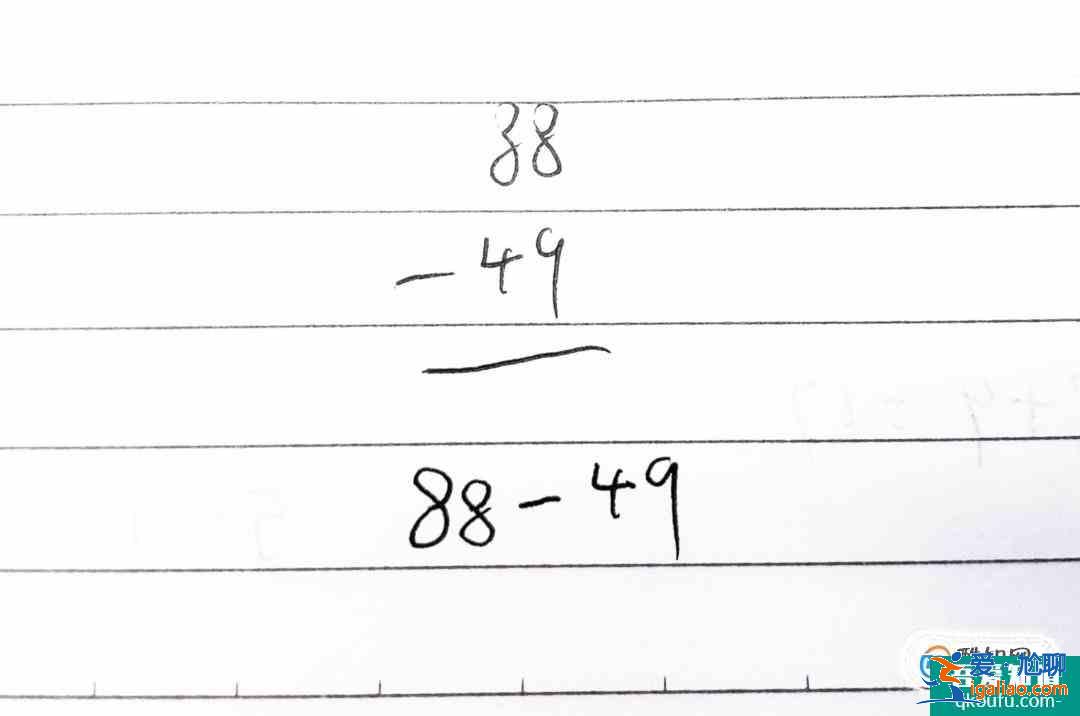 88
- 49
88 - 49
爱·尬聊
igaliao.com
qkbufu.com-